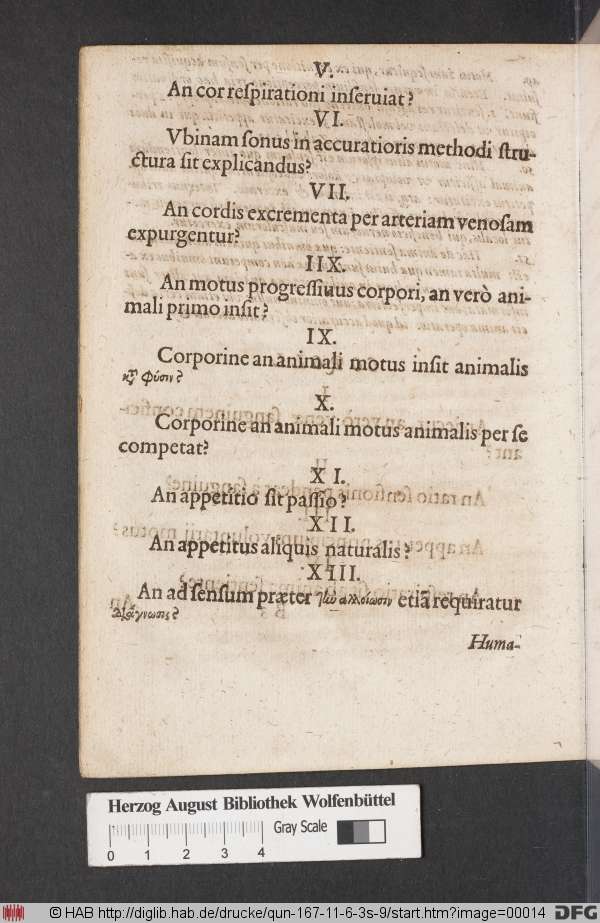 V.
An cor reſpirationi inſeruiat?
VI.
Vbinam ſonus in accuratioris methodi ſtru-
ctura ſit explicandus?
VII.
An cordis excrementa per arteriam venoſam
expurgentur?
IIX.
An motus progreſſiuus corpori, an verò ani-
mali primo inſit?
IX.
Corporine an animali motus inſit animalis
κτ̀ φύσιν?
X.
Corporine an animali motus animalis per ſe
competat?
XI.
An appetitio ſit paſſio?
XII.
An appetitus aliquis naturalis?
XIII.
An ad ſenſum præter τὴν ἀλλοίωσιν etiã requiratur
διάγνωσις?
Huma-
Herzog August Bibliothek Wolfenbüttel
Gray Scale
0 1 2 3 4
© HAB http://diglib.hab.de/drucke/qun-167-11-6-3s-9/start.htm?image=00014
DFG